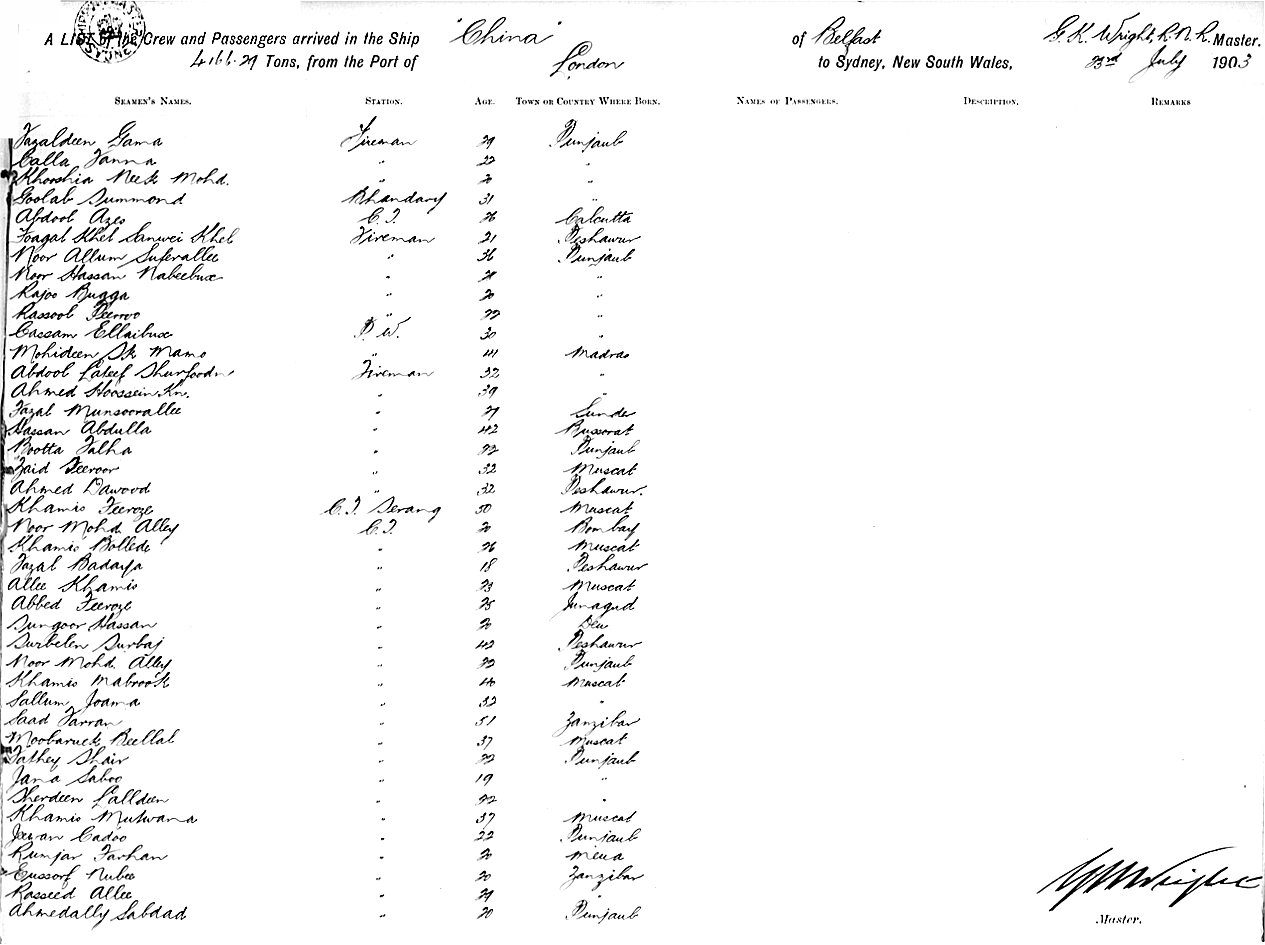 A LIST of the Crew and Passengers arrived in the Ship "China" of Belfast G. K. Wright, R.N.R. Master.
4166.29 Tons, from the Port of London to Sydney, New South Wales, 23rd July 1903
SEAMEN'S NAMES. STATION. AGE. TOWN OR COUNTRY WHERE BORN. NAMES OF PASSENGERS. DESCRIPTION. REMARKS
Fazaldeen Gama Fireman 29 Punjaub
Calla Janna " 22 "
Khooshia Neek Mohd. " 20 "
Goolab Summond Bhandary 31 "
Abdool Azes C.T. 26 Calcutta
Joagal Khel Sanwei Khel Fireman 21 Peshawur
Noor Allum Suferallee " 36 Punjaub
Noor Hassan Nabeebux " 28 "
Rajoo Bugga " 20 "
Rassool Peeroo " 22 "
Cassam Ellaibux P.W. 30 "
Mohideen Sk Mamo " 41 Madras
Abdool Lateef Shurfoodn Fireman 32 "
Ahmed Hoossein Kn. " 39 "
Fazal Munsoorallee " 27 Sunder
Hassan Abdulla " 42 Bussorat
Bootta Talha " 22 Punjaub
Zaid Feeroor " 32 Muscat
Ahmed Dawood " 32 Peshawur.
Khamis Feeroze C.T. Serang 50 Muscat
Noor Mohd Alley C.T. 20 Bombay
Khamis Bollede " 26 Muscat
Fazal Badaya " 18 Peshawur
Allee Khamis " 23 Muscat
Abbed Feeroze " 25 Junagud
Sungoor Hassan " 20 Deu
Surbelen Surbaj " 42 Peshawur
Noor Mohd. Alley " 22 Punjaub
Khamis Mabrook " 40 Muscat
Sallum Joama " 32 "
Saad Farran " 51 Zanzibar
Moobaruck Beellal " 37 Muscat
Fathey Shair " 22 Punjaub
Jana Saboo " 19 "
Sherdeen Lalldeen " 22 "
Khamis Mutwana " 37 Muscat
Jeevan Cadoo " 22 Punjaub
Runjar Farhan " 20 Mena
Eussorf Nubee " 20 Zanzibar
Rasseed Allee " 29 "
Ahmedally Sabdad " 20 Punjaub
G K Wright
Master.